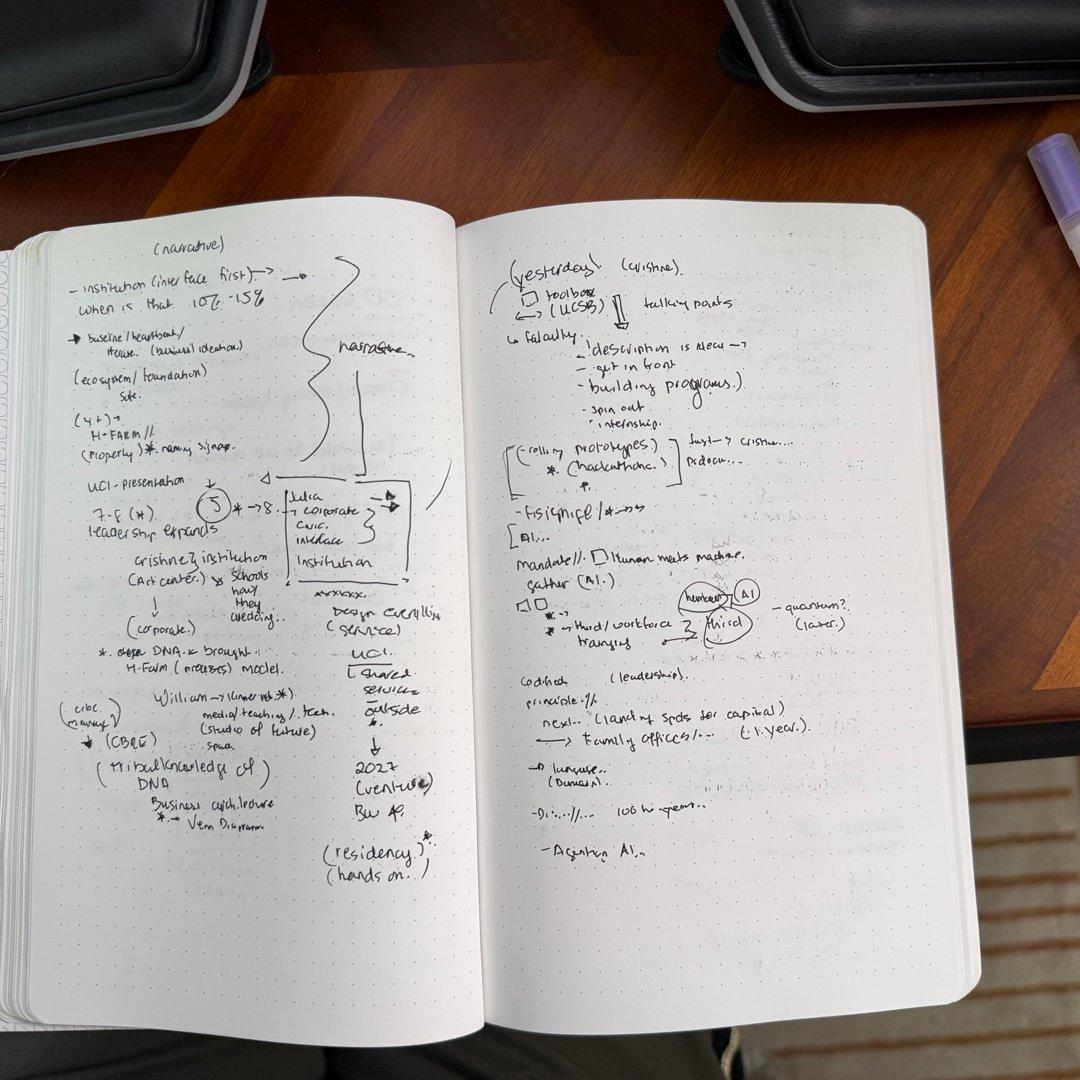 (narrative)
- institution (interface first) → →
when is that 10%-15%
→ baseline/heartbeat/
iterate. (business ideation)
(ecosystem/foundation)
Site.
(4+)→
H-FARM //
(property) * naming signage.
narrative
UCI - presentation
5 * → 8.
7-8 (*)
leadership expands
Julia
→ corporate
civic.
interface
Institution
crishne } institution
(Art center.) Schools
how
they
wedding..
(corporate.)
* DNA brought
H-Farm (processes) model.
xxxxxxx.
Design everything
(service)
UCI.
[shared
services
outside
*.
2027
(venture)
William →
media/teaching/..tech.
(studio of future)
space
(CBRE)
(tribal knowledge of)
DNA
Business architecture
* → Venn Diagrams
(residency.) *
(hands on..)
(yesterday) (cristine).
□ toolbox
(UCSB) talking points
↳ faculty
description is new →
- get in front
- building programs.)
- spin out
internship.
[(-rolling prototypes)
*. (hackathons.)
cristine....
[AI...
mandate //. □ Human meets machine.
gather (AI.)
□□
human AI
* → third/workforce } third
training
- quantum?
(later.)
codified (leadership).
principle.//.
next.. (landing spots for capital)
→ family offices/... (1.year.).
→ language..
(Domain).
100 hi-
- Agentic AI..